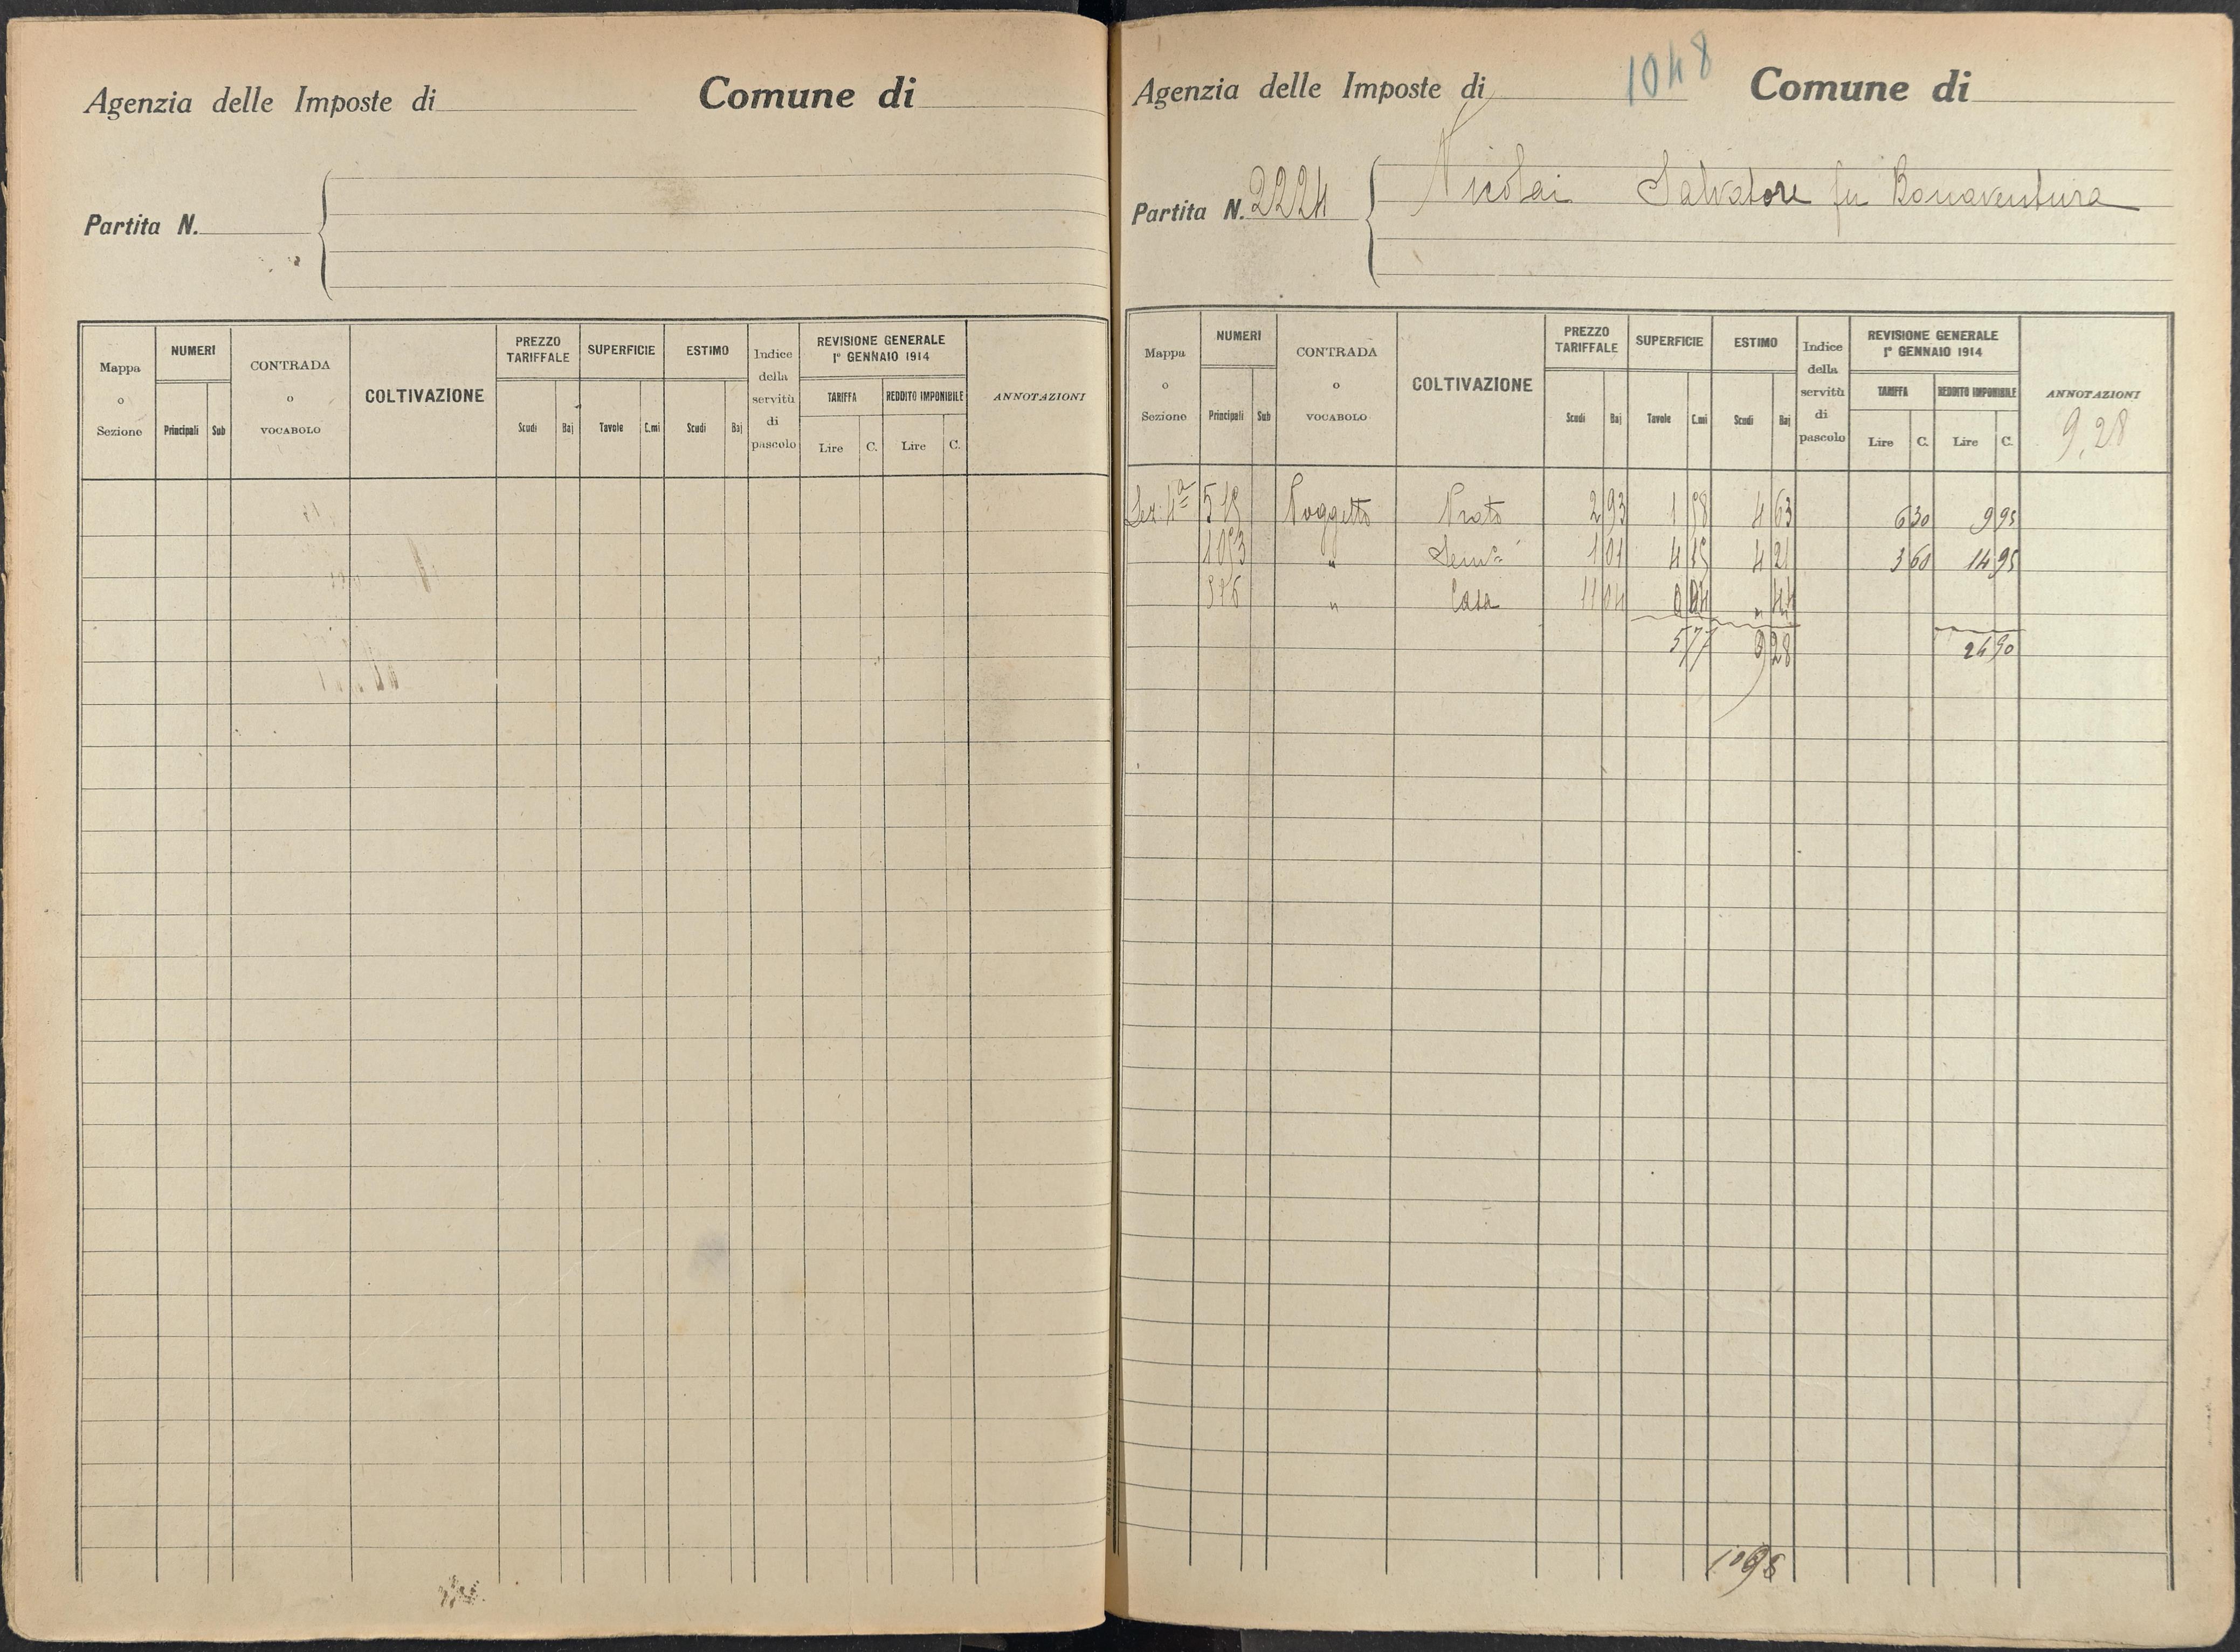 Agenzia delle Imposte di Comune di
Partita N.
Mappa o Sezione NUMERI Principali Sub CONTRADA o VOCABOLO COLTIVAZIONE PREZZO TARIFFALE Scudi Baj SUPERFICIE Tavole C.mi ESTIMO Scudi Baj Indice della servitù di pascolo REVISIONE GENERALE 1° GENNAIO 1914 TARIFFA Lire C. REDDITO IMPONIBILE Lire C. ANNOTAZIONI
1048
Agenzia delle Imposte di Comune di
Partita N. 2224 Nicolai Salvatore fu Bonaventura
Mappa o Sezione NUMERI Principali Sub CONTRADA o VOCABOLO COLTIVAZIONE PREZZO TARIFFALE Scudi Baj SUPERFICIE Tavole C.mi ESTIMO Scudi Baj Indice della servitù di pascolo REVISIONE GENERALE 1° GENNAIO 1914 TARIFFA Lire C. REDDITO IMPONIBILE Lire C. ANNOTAZIONI
9,28
Sez. 4ª Poggetto Prato 2 93 1 58 4 63 6 30 9 95
1053 " Sem° 1 01 4 15 4 21 3 60 14 95
" Casa 11 04 0 04 " 44
5 77 9 28 24 90